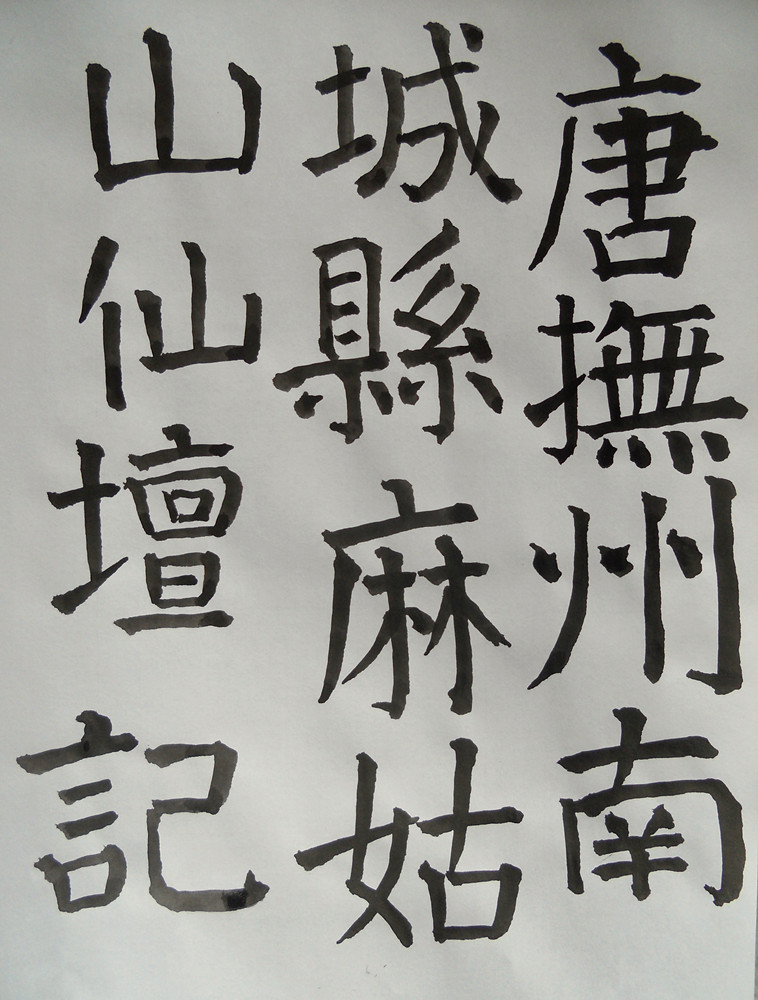 唐撫州南
城縣麻姑
山仙壇記